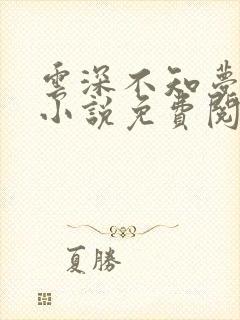 雲深不知夢
小說免費閱
夏勝